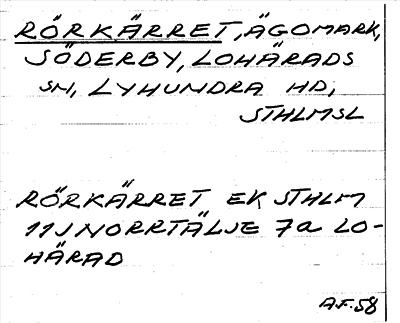 RÖRKÄRRET, ÄGOMARK,
SÖDERBY, LOHÄRADS
SN, LYHUNDRA HD,
STHLMSL
RÖRKÄRRET EK STHLM
11J NORRTÄLJE 7a LO-
HÄRAD
AF.58